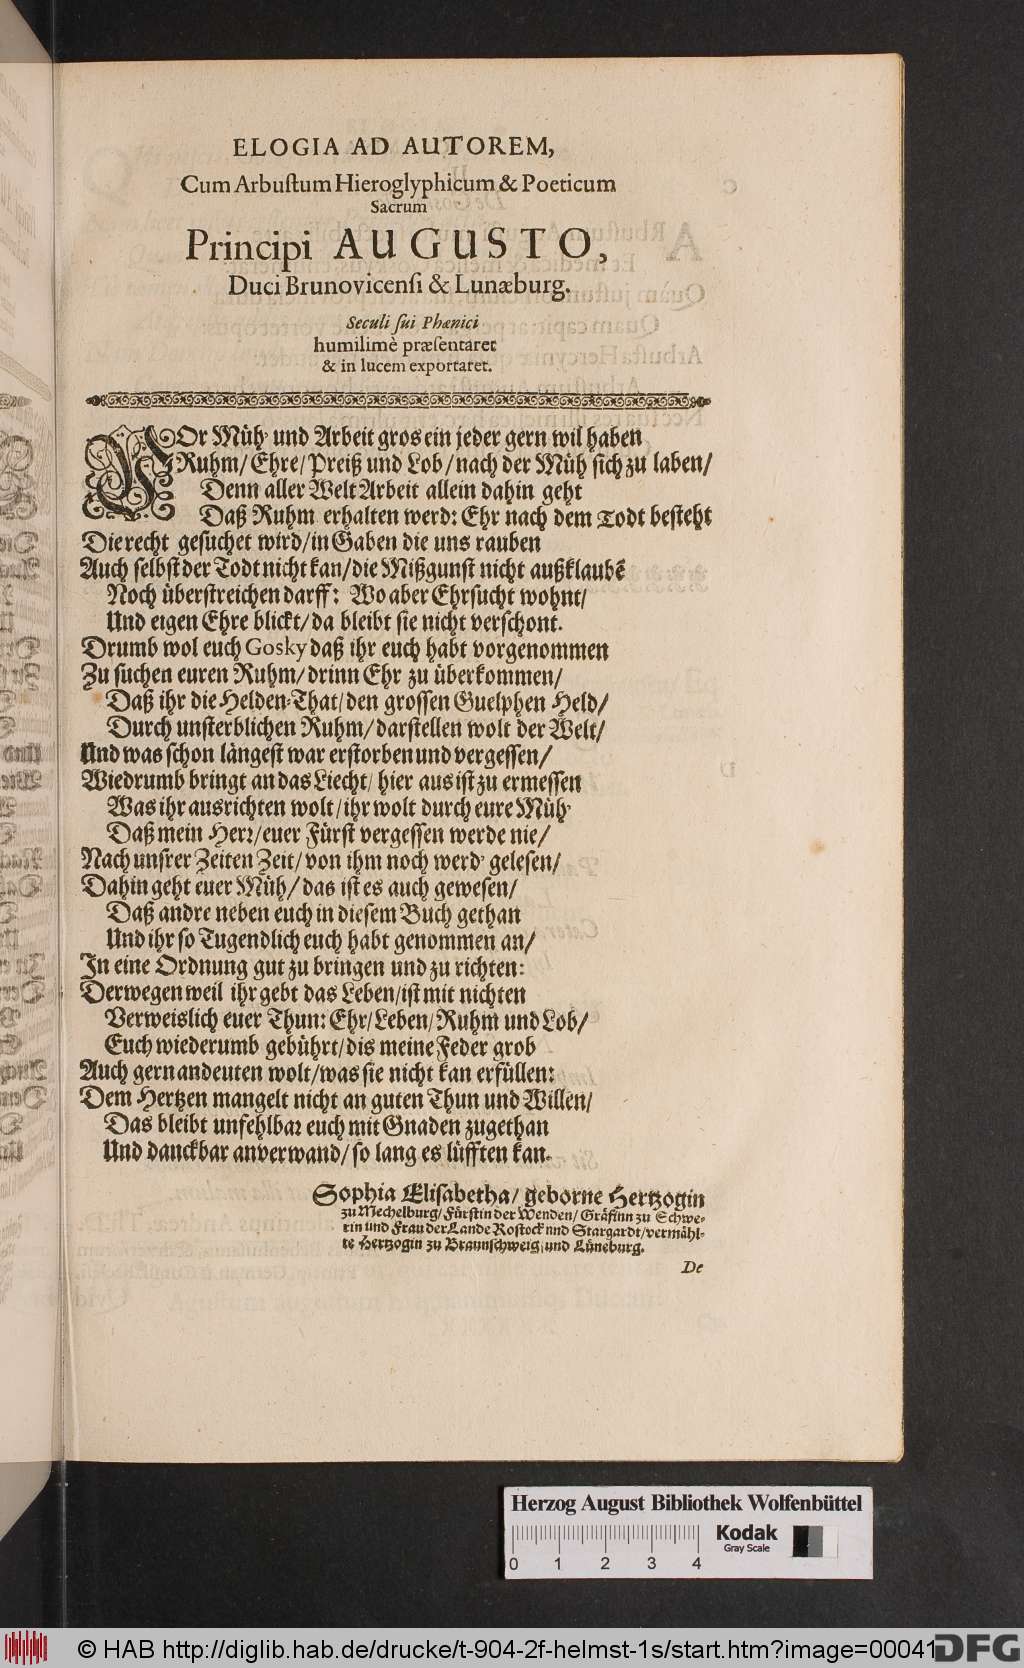 ELOGIA AD AUTOREM,
Cum Arbuſtum Hieroglyphicum & Poeticum
Sacrum
Principi AUGUSTO,
Duci Brunovicenſi & Lunæburg.
Seculi ſui Phœnici
humilimè præſentaret
& in lucem exportaret.
VOr Müh' und Arbeit gros ein jeder gern wil haben
Ruhm/ Ehre/ Preiß und Lob/ nach der Müh ſich zu laben/
Denn aller Welt Arbeit allein dahin geht
Daß Ruhm erhalten werd: Ehr nach dem Todt beſteht
Die recht geſuchet wird/ in Gaben die uns rauben
Auch ſelbſt der Todt nicht kan/ die Mißgunſt nicht außklaubē
Noch überſtreichen darff: Wo aber Ehrſucht wohnt/
Und eigen Ehre blickt/ da bleibt ſie nicht verſchont.
Drumb wol euch Gosky daß ihr euch habt vorgenommen
Zu ſuchen euren Ruhm/ drinn Ehr zu überkommen/
Daß ihr die Helden-That/ den groſſen Guelphen Held/
Durch unſterblichen Ruhm/ darſtellen wolt der Welt/
Und was ſchon längeſt war erſtorben und vergeſſen/
Wiedrumb bringt an das Liecht/ hier aus iſt zu ermeſſen
Was ihr ausrichten wolt/ ihr wolt durch eure Müh'
Daß mein Herꝛ/ euer Fürſt vergeſſen werde nie/
Nach unſrer Zeiten Zeit/ von ihm noch werd' geleſen/
Dahin geht euer Müh/ das iſt es auch geweſen/
Daß andre neben euch in dieſem Buch gethan
Und ihr ſo Tugendlich euch habt genommen an/
In eine Ordnung gut zu bringen und zu richten:
Derwegen weil ihr gebt das Leben/ iſt mit nichten
Verweislich euer Thun: Ehr/ Leben/ Ruhm und Lob/
Euch wiederumb gebührt/ dis meine Feder grob
Auch gern andeuten wolt/ was ſie nicht kan erfüllen:
Dem Hertzen mangelt nicht an guten Thun und Willen/
Das bleibt unfehlbaꝛ euch mit Gnaden zugethan
Und danckbar anverwand/ ſo lang es lüfften kan.
Sophia Eliſabetha/ geborne Hertzogin
zu Mechelburg/ Fürſtin der Wenden/ Gräfinn zu Schwe-
rin und Frau der Lande Roſtock nnd Stargardt/ vermähl-
te Hertzogin zu Braunſchweig und Lüneburg.
De
Herzog August Bibliothek Wolfenbüttel
Kodak
Gray Scale
0 1 2 3 4
© HAB http://diglib.hab.de/drucke/t-904-2f-helmst-1s/start.htm?image=00041
DFG